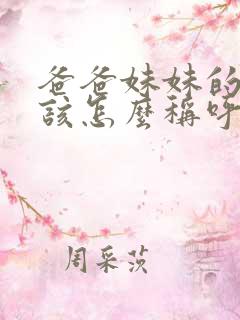 爸爸妹妹的
該怎麼稱呼
周采茨